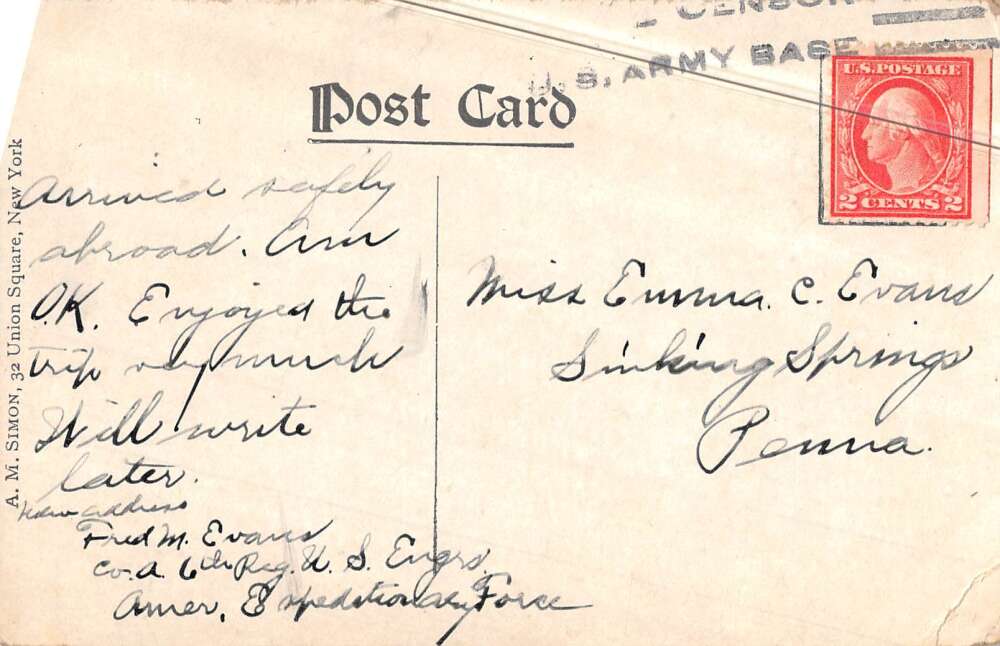 CENSOR
U.S. ARMY BASE
Post Card
U.S. POSTAGE
2 CENTS 2
A. M. SIMON, 32 Union Square, New York
Arrived safely
abroad. Am
O.K. Enjoyed the
trip very much
Will write
later.
New address
Fred M. Evans
Co. A. 6th Reg. U. S. Engrs.
Amer. Expeditionary Force
Miss Emma. C. Evans
Sinking Springs
Penna.